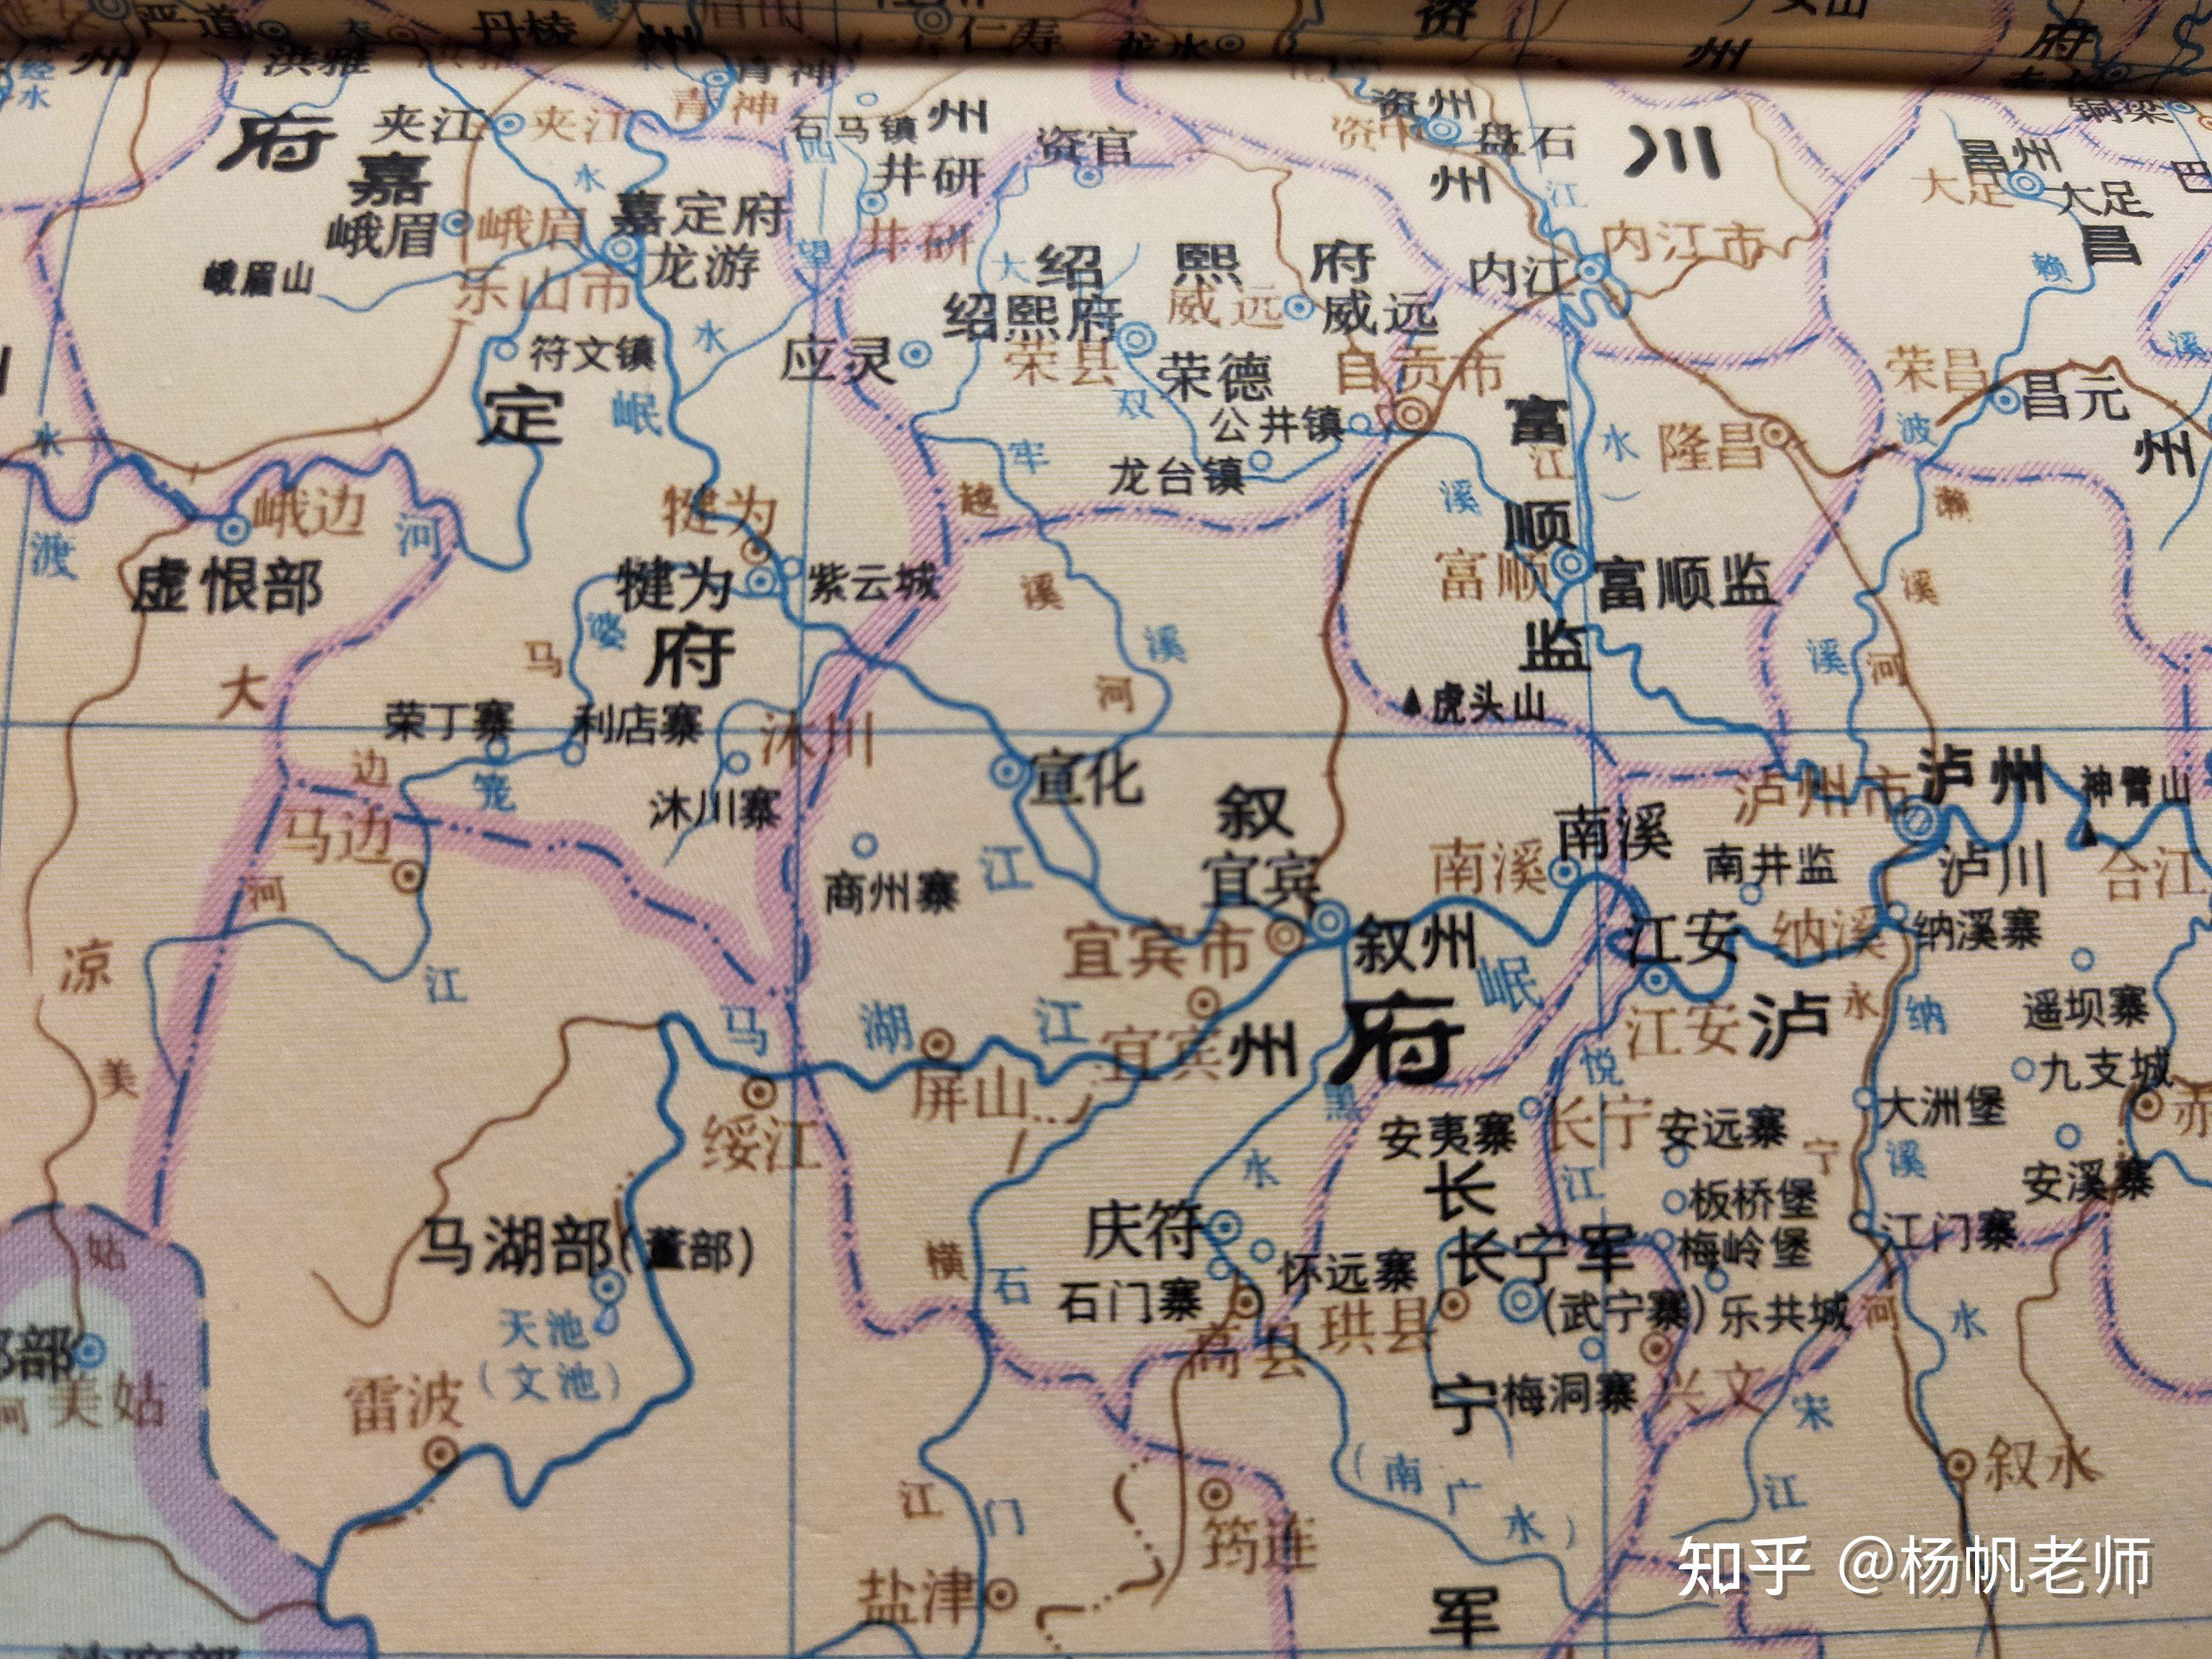 严道
洪雅
丹棱
州
仁寿
龙水
资
州
府
州
青神
青神
铜梁
水
府
夹江
夹江
石马镇
州
资官
资州
盘石
川
昌州
大足
大足
巴
嘉
井研
州
江
昌
峨眉
峨眉
嘉定府
井研
水
望
大
内江市
峨眉山
龙游
绍熙府
内江
赖
乐山市
绍熙府
威远
威远
符文镇
水
应灵
荣县
荣德
自贡市
荣昌
溪
定
岷
双
公井镇
富
昌元
水
江
水
隆昌
波
州
牢
龙台镇
峨边
犍为
越
溪
顺
濑
渡
河
虚恨部
犍为
紫云城
溪
富顺
富顺监
溪
婆
马
府
溪
监
溪
河
大
河
虎头山
荣丁寨
利店寨
沐川
边
笼
宣化
泸州市
泸州
神臂山
沐川寨
叙
南溪
马边
商州寨
江
宜宾
南溪
南井监
泸川
合江
河
凉
宜宾市
叙州
江安
纳溪
纳溪寨
江
岷
美
马
湖
江
宜宾
州
府
江安
泸
永
纳
遥坝寨
屏山
悦
九支城
绥江
黑
安夷寨
长宁
安远寨
大洲堡
赤
水
长
江
宁
溪
安溪寨
马湖部(董部)
庆符
板桥堡
江门寨
姑
横
石
怀远寨
长宁军
梅岭堡
石门寨
(武宁寨)
乐共城
河
水
天池
(文池)
部
高县
珙县
美姑
河
雷波
宁
梅洞寨
兴文
宋
江
门
(南广水)
江
叙永
筠连
盐津
军
知乎 @杨帆老师